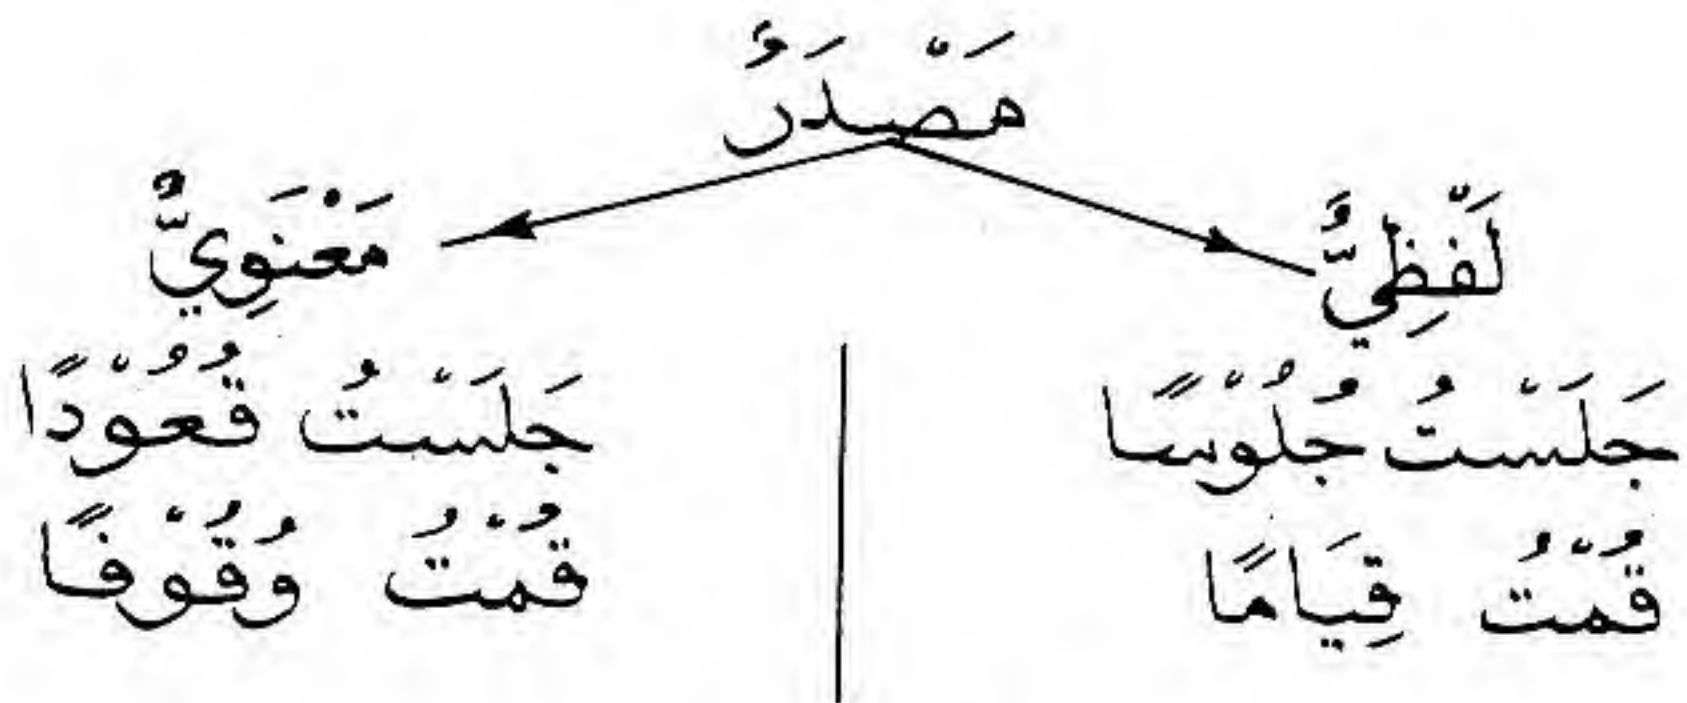 مَصْدَرٌ
لَفْظِيٌّ
جَلَسْتُ جُلُوْسًا
قُمْتُ قِيَامًا
مَعْنَوِيٌّ
جَلَسْتُ قُعُوْدًا
قُمْتُ وُقُوْفًا